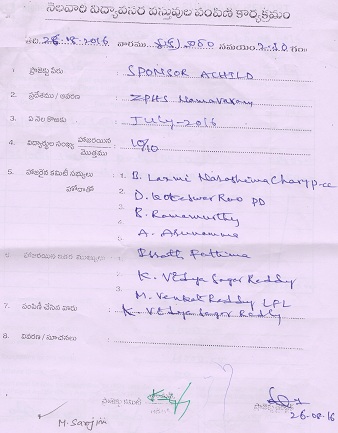 నెలవారి విద్యావసర వస్తువుల పంపిణి కార్యక్రమం
తేది. 26-08-2016 వారము... శుక్రవారం సమయం: 2-10 గం॥
1. ప్రాజెక్టు పేరు : SPONSOR ACHILD
2. ప్రదేశము / ఆవరణ : ZPHS Mamavaram
3. ఏ నెల కొరకు : July-2016
4. విద్యార్థుల సంఖ్య హాజరయిన/మొత్తము : 10/10
5. హాజరైన కమిటీ సభ్యులు 1. B. Laxmi Narasthima Chary P-cc
హోదాతో 2. D. Koteswar Rao PD
3. B. Ramamurthy
4. A. Arunamma
6. హాజరయిన ఇతర ముఖ్యులు : 1. Ishrath Fathima
K. Vidya Sagar Reddy
M. Venkat Reddy LPL
7. పంపిణీ చేసిన వారు : K. Vidya Sagar Reddy
8. వివరణ / సూచనలు :
ప్రాజెక్టు కమిటీ
26-08-16
M. Sarojini